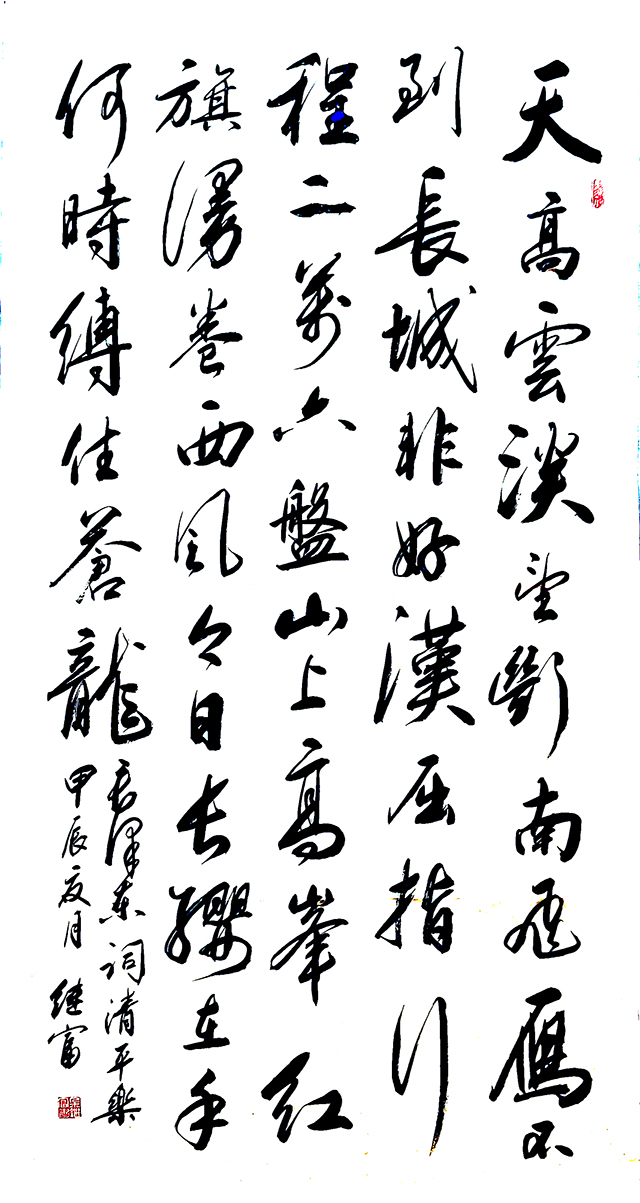 天高雲淡望斷南飛雁不
到長城非好漢屈指行
程二萬六盤山上高峯紅
旗漫卷西風今日長纓在手
何時縛住蒼龍
毛澤東詞清平樂
甲辰夏月继富